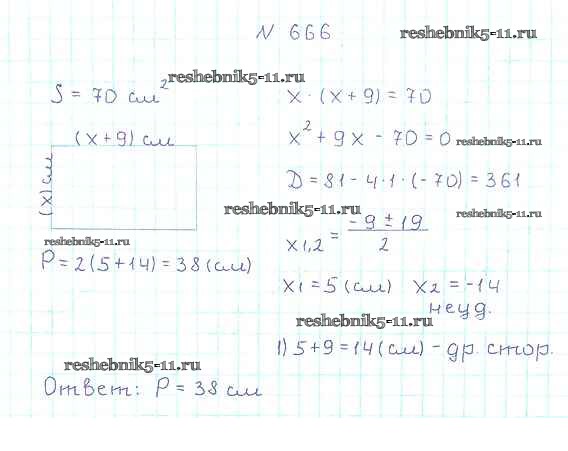 N 666
reshebnik5-11.ru
reshebnik5-11.ru
S = 70 см²
x · (x + 9) = 70
(x+9) см
x² + 9x - 70 = 0
reshebnik5-11.ru
(x) см
D = 81 - 4·1·(-70) = 361
reshebnik5-11.ru
reshebnik5-11.ru
x1,2 = (-9 ± 19)/2
reshebnik5-11.ru
P = 2(5+14) = 38 (см)
x1 = 5 (см) x2 = -14
неуд.
reshebnik5-11.ru
1) 5+9 = 14 (см) - др. стор.
reshebnik5-11.ru
Ответ: P = 38 см